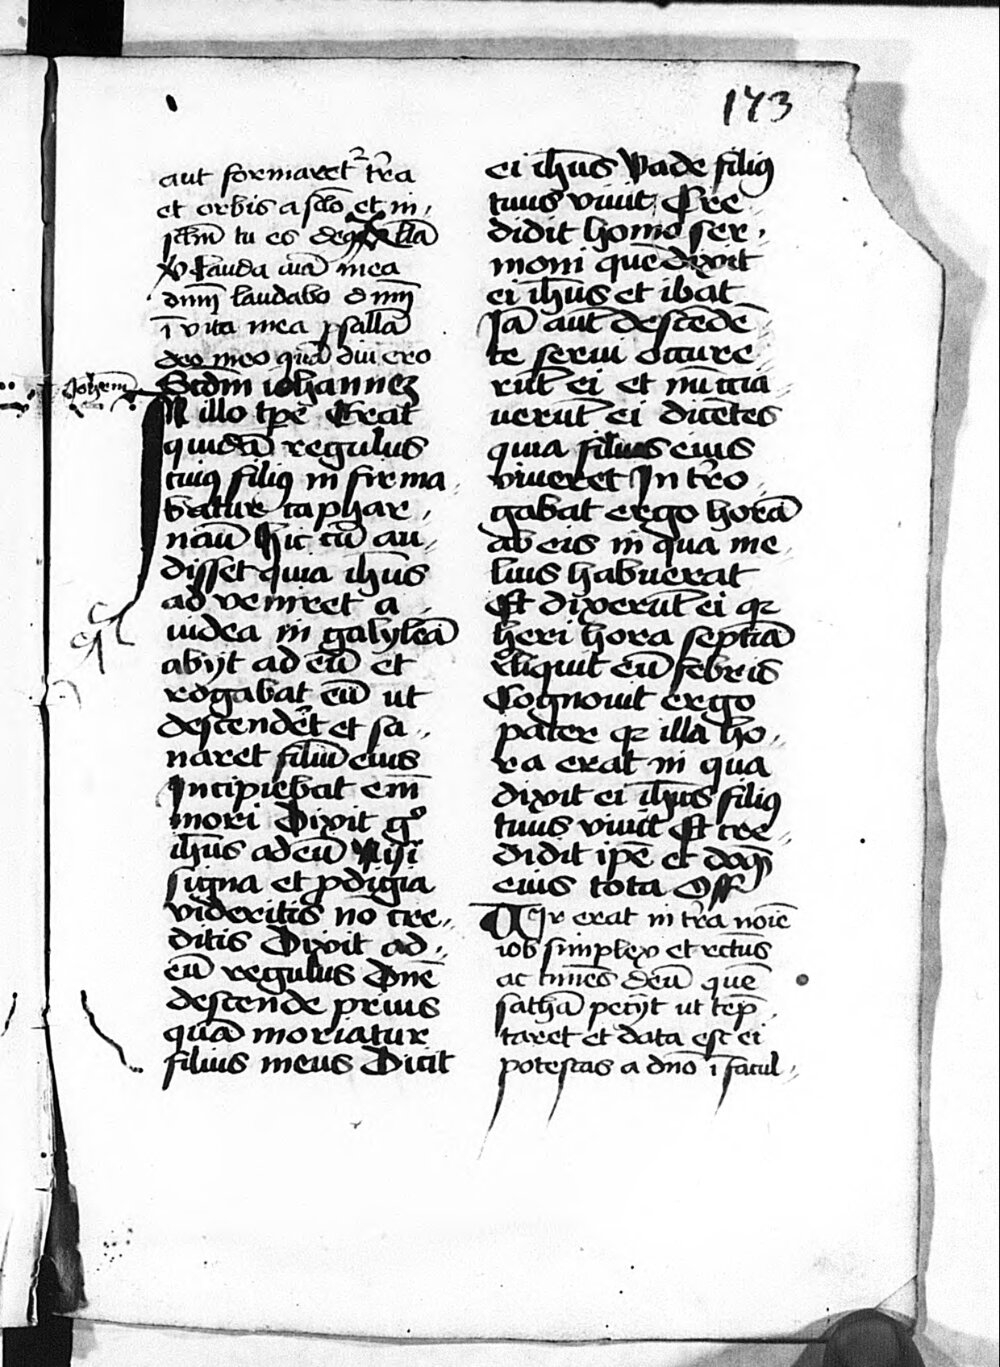 173
aut formaret᷑ tr̄a
et orbis a sclo et in
sclm̄ tu es deus
Lauda aīa mea
dnm̄ laudabo dnm̄
ī vita mea psallā
deo meo quā diu ero
Scdm̄ iohannez
Johem̄
In illo tp̄e Erat
quidā regulus
cuiꝰ filiꝰ in firma
batur caphar
naū Hic cū au
disset quia ih̄us
ad veniret a
iudea in galyleā
abijt ad eū et
rogabat eū ut
descender̄t et sa
naret filiū eius
Incipiebat em̄
mori Dixit gͦ
ih̄us ad eū Nisi
signa et p̄digia
videritis nō cre
ditis Dixit ad
eū regulus Dn̄e
descende prius
quā moriatur
filius meus Dicit
ei ih̄us Vade filiꝰ
tuus viuit Cre
didit homo ser
moni quē dixit
ei ih̄us et ibat
Iā aut̄ descēdē
te serui occure
rūt ei et nūccia
uerūt ei dicētes
quia filius eius
viueret In tr̄o
gabat ergo horā
ab eis in qua me
lius habuerat
Et dixerūt ei qꝫ
heri hora septiā
reliquit eū febris
Cognouit ergo
pater qꝫ illa ho
ra erat in qua
dixit ei ih̄us filiꝰ
tuus viuit Et cre
didit ip̄e et domꝰ
eius tota Off
Uir erat in tr̄a noīe
iob simplex et rc̄tus
ac timēs deū quē
sathā pecijt ut tēp
taret et data est ei
potestas a dn̄o ī facul